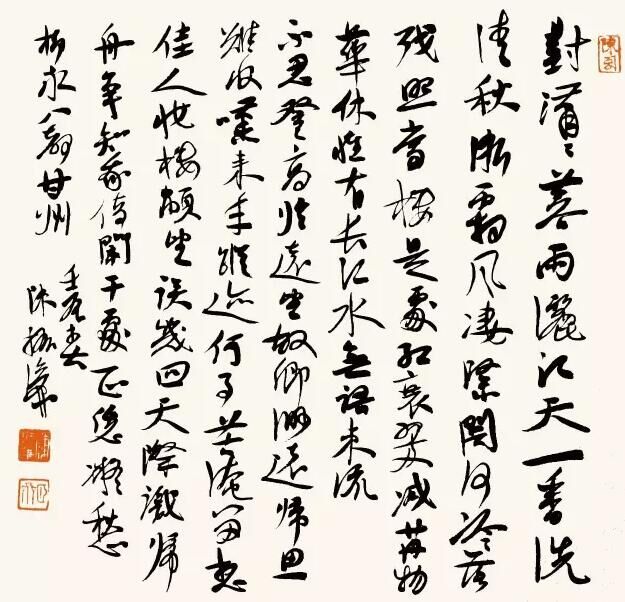 對瀟〻暮雨灑江天一番洗
清秋漸霜風凄緊關河冷落
残照當樓是處红衰翠减苒物
華休惟有長江水無語東流
不忍登高临遠望故鄉渺遠帰思
難收嘆来年蹤迹何事苦淹留想
佳人妝樓顒望誤幾回天際識帰
舟争知我倚闌干處正恁凝愁
柳永八聲甘州